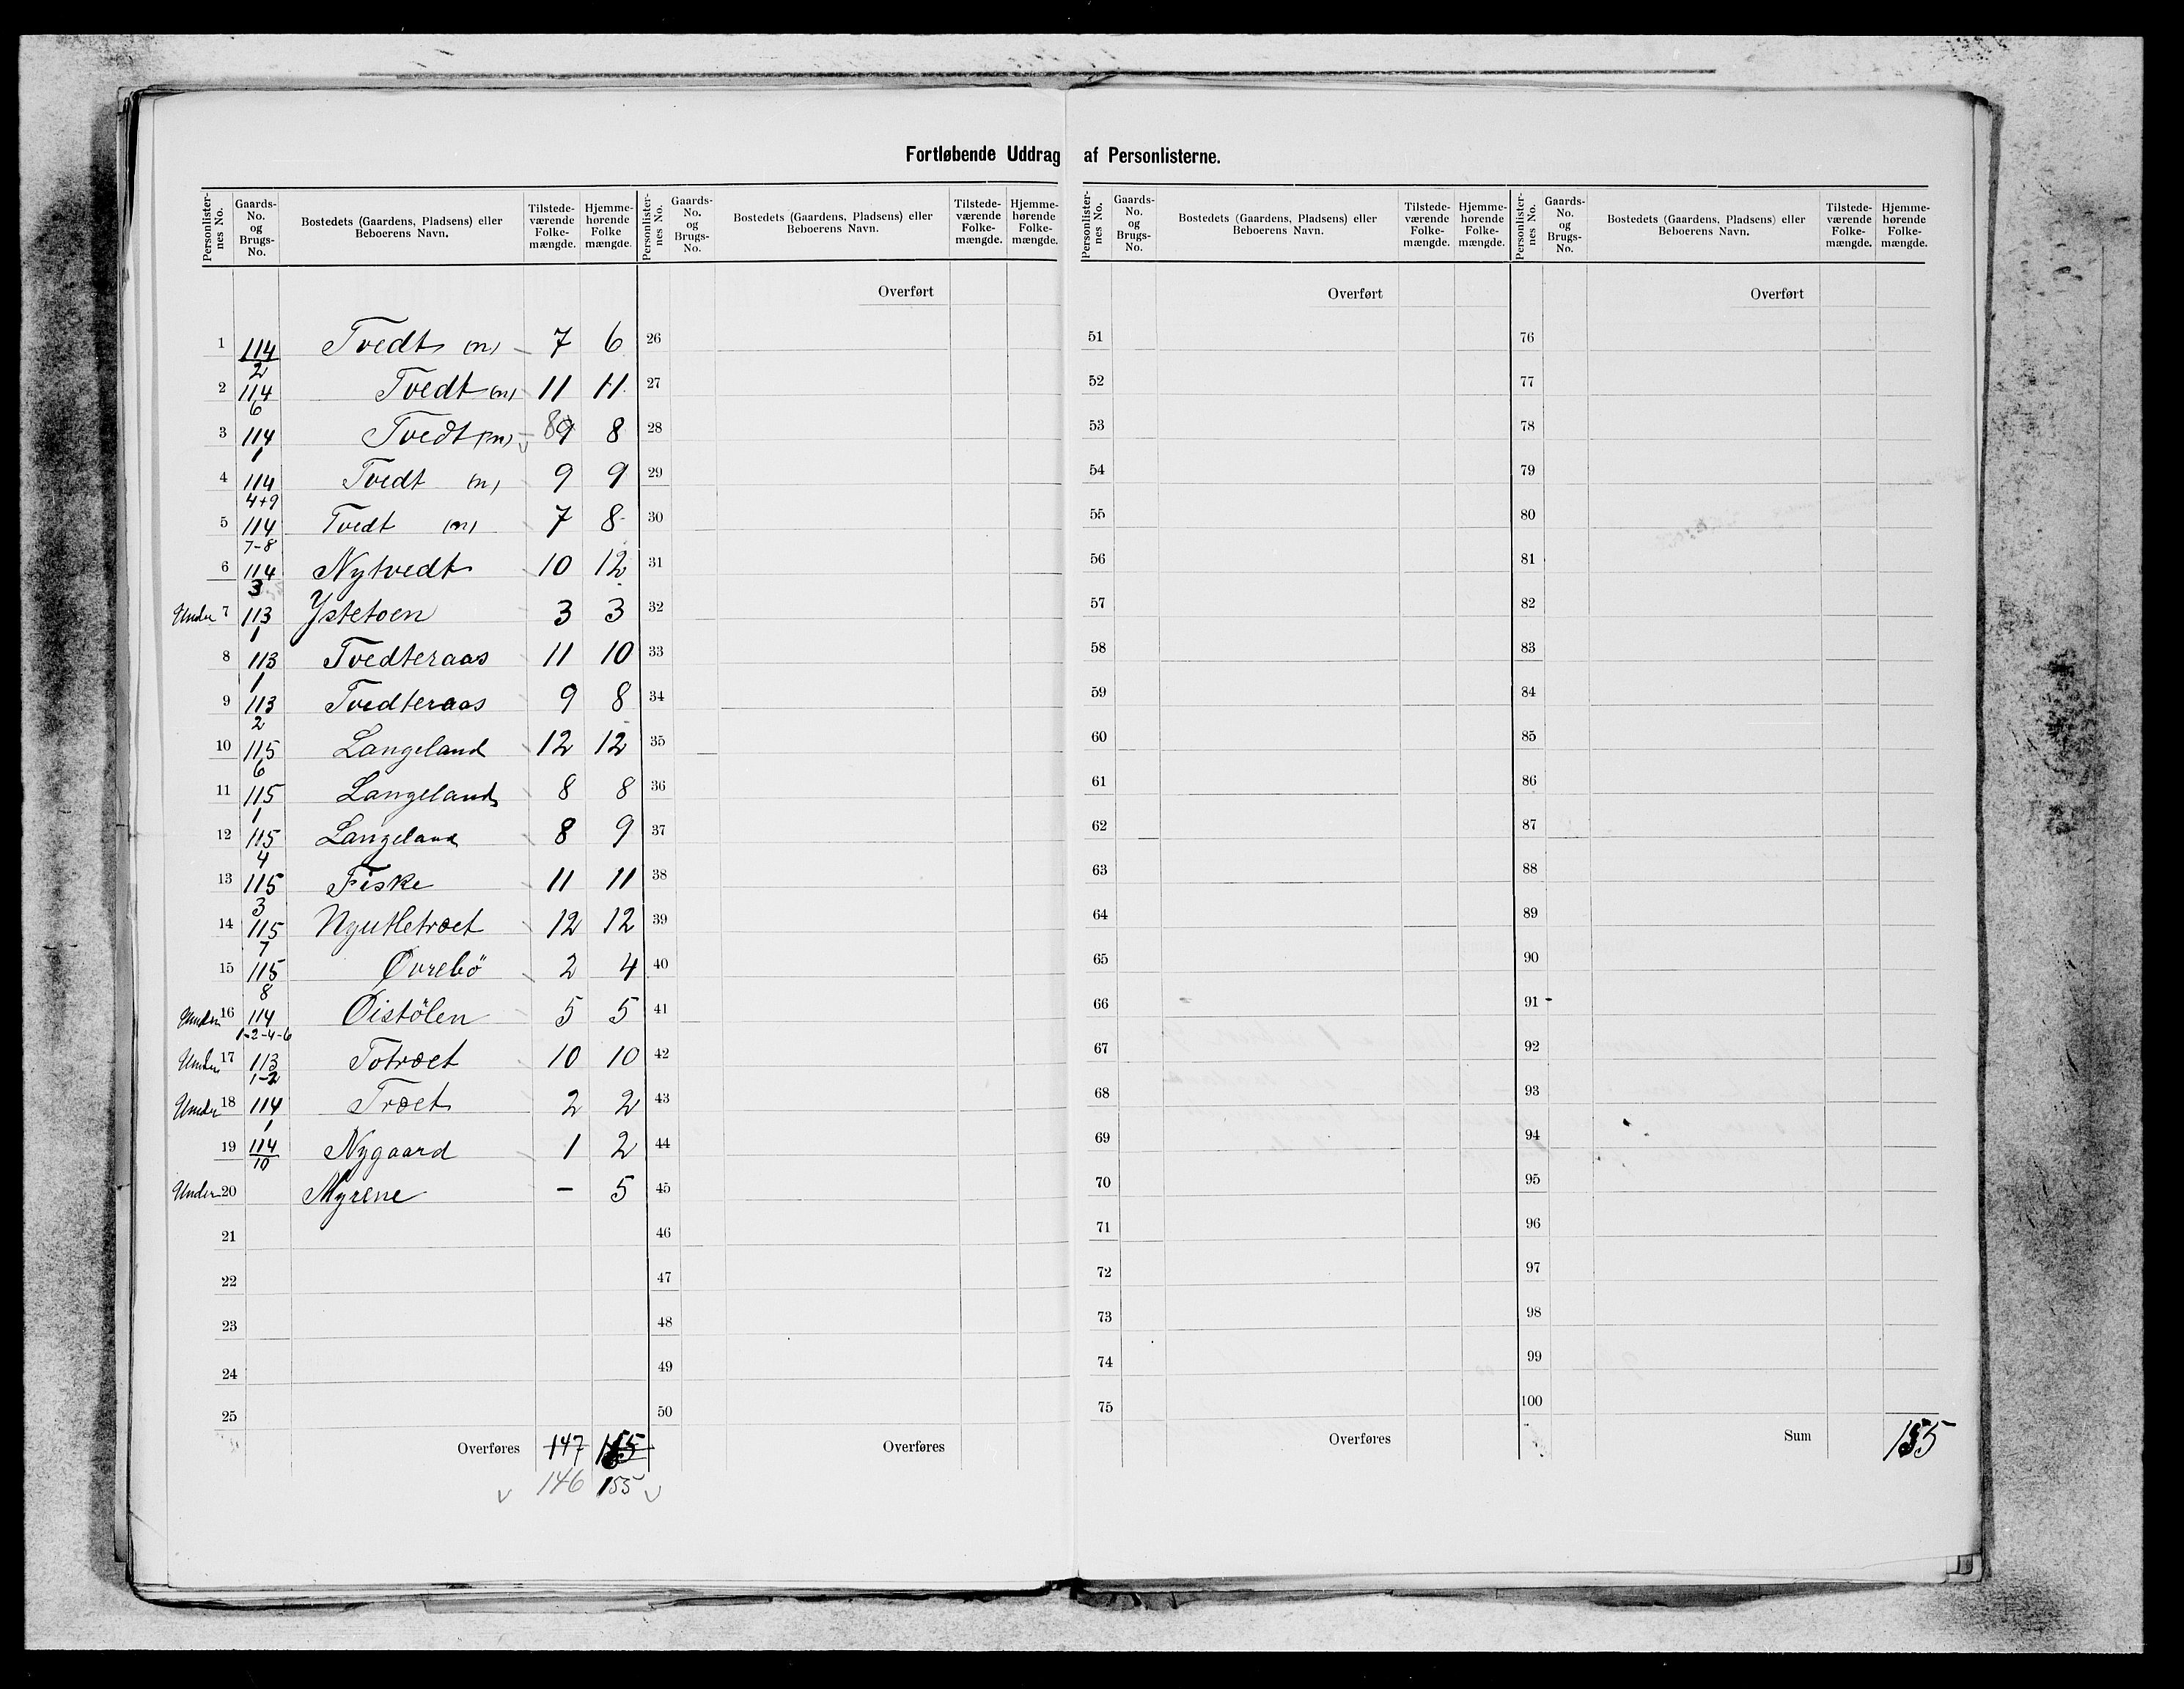 Fortløbende Uddrag af Personlisterne.
Personlisternes No. Gaards-No. og Brugs-No. Bostedets (Gaardens, Pladsens) eller Beboerens Navn. Tilstedeværende Folkemængde. Hjemmehørende Folke mængde.
Personlisternes No. Gaards-No. og Brugs-No. Bostedets (Gaardens, Pladsens) eller Beboerens Navn. Tilstedeværende Folkemængde. Hjemmehørende Folkemængde.
Personlisternes No. Gaards-No. og Brugs-No. Bostedets (Gaardens, Pladsens) eller Beboerens Navn. Tilstedeværende Folkemængde. Hjemmehørende Folkemængde.
Personlisternes No. Gaards-No. og Brugs-No. Bostedets (Gaardens, Pladsens) eller Beboerens Navn. Tilstedeværende Folkemængde. Hjemmehørende Folkemængde.
Overført Overført Overført
1 114/2 Tvedt (n) 7 6 26 51 76
2 114/6 Tvedt (n) 11 11 27 52 77
3 114/1 Tvedt (n) 8 9 8 28 53 78
4 114/4+9 Tvedt (n) 9 9 29 54 79
5 114/7-8 Tvedt (n) 7 8 30 55 80
6 114/3 Nytvedt 10 12 31 56 81
Under 7 113/1 Ystetoen 3 3 32 57 82
8 113/1 Tvedteraas 11 10 33 58 83
9 113/2 Tvedteraas 9 8 34 59 84
10 115/6 Langeland 12 12 35 60 85
11 115/1 Langeland 8 8 36 61 86
12 115/4 Langeland 8 9 37 62 87
13 115/3 Fiske 11 11 38 63 88
14 115/7 12 12 39 64 89
15 115/8 Øvrebö 2 4 40 65 90
Under 16 114/1-2-4-6 Øistölen 5 5 41 66 91
Under 17 113/1-2 Totræet 10 10 42 67 92
Under 18 114/1 Træet 2 2 43 68 93
19 114/10 Nygaard 1 2 44 69 94
Under 20 Myrene - 5 45 70 95
21 46 71 96
22 47 72 97
23 48 73 98
24 49 74 99
25 50 75 100
Overføres 147 Overføres Overføres Sum 155
146 155